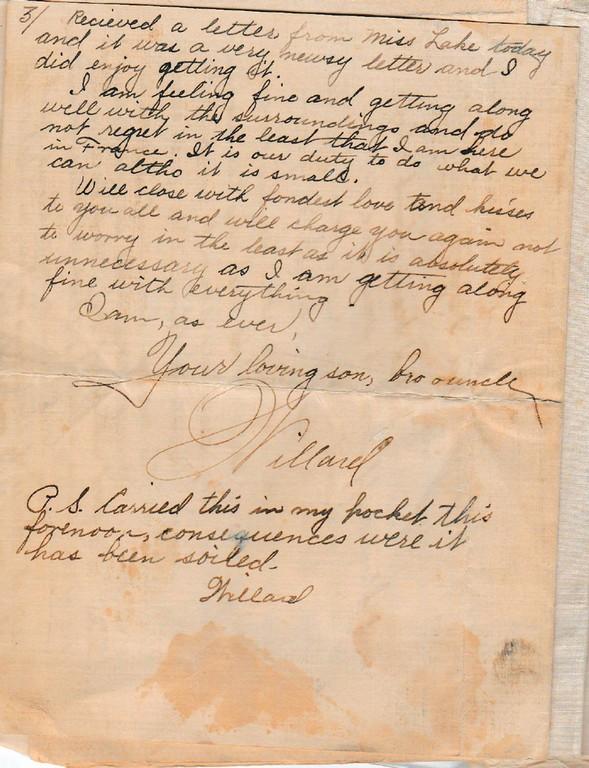 3/ Recieved a letter from Miss Lake today
and it was a very newsy letter and I
did enjoy getting it.
I am feeling fine and getting along
well with the surroundings and do
not regret in the least that I am here
in France. It is our duty to do what we
can altho it is small.
Will close with fondest love and kisses
to you all and will charge you again not
to worry in the least as it is absolutely
unnecessary as I am getting along
fine with everything.
I am, as ever,
Your loving son, bro o uncle
Willard
P.S. Carried this in my pocket this
forenoon, consequences were it
has been soiled.
Willard